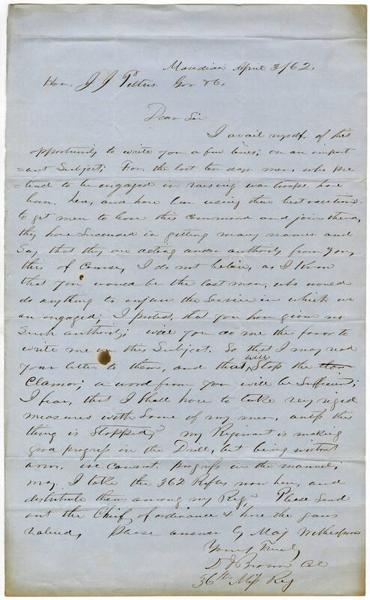 Meridian April 3/62
Hon. J J Pettus Gov &c.
Dear Sir
I avail myself of this
opportunity to write you a few lines, on an import
ant Subject; For the last ten days men, who pre
tend to be engaged in raising war troops have
been here, and have been using their best exertions
to get men to leave this command and join theirs,
they have Succeeded in getting many names and
Say that they are acting under authority from You,
this of Course, I do not believe, as I know
that you would be the last man, who would
do anything to injure the Service in which we
are engaged; I protest, that you have given no
Such authority; will you do me the favor to
write me on this Subject. So that I may read
your letter to them, and that will Stop the
Clamor; a word from you will be Sufficient;
I fear, that I Shall have to take very rigid
measures with Some of my men, unless this
thing is Stopped, my Regiment is making
good progress in the Drill, but being without
arms. we cannot progress in the manual,
may I take the 362 Rifles now here, and
distribute them among my Reg, Please Send
out the Chief of ordinance & have the guns
valued, Please answer by Maj
Yours Truly
D J Brown Col
36th Miss Reg